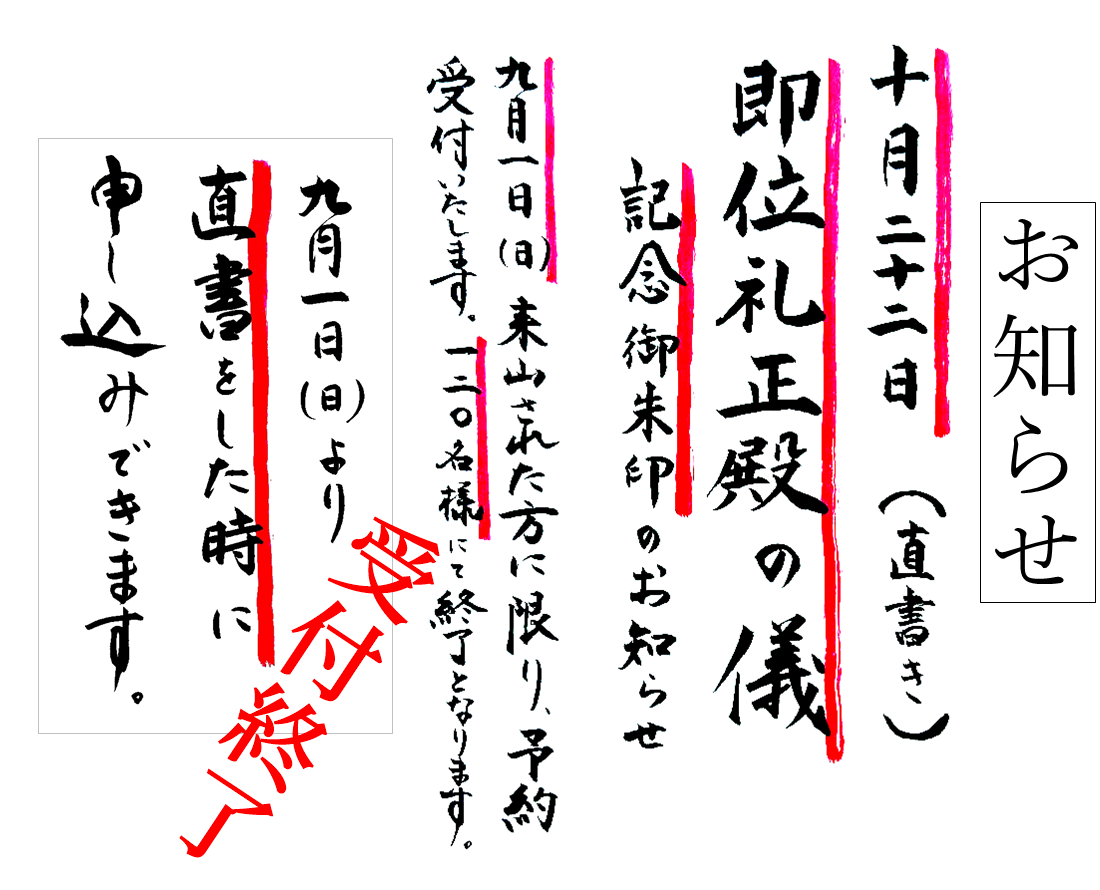 お知らせ
十月二十二日（直書き）
即位礼正殿の儀
記念御朱印のお知らせ
九月一日（日）来山された方に限り、予約
受付いたします。一二〇名様にて終了となります。
九月一日（日）より
直書をした時に
申し込みできます。
受付終了